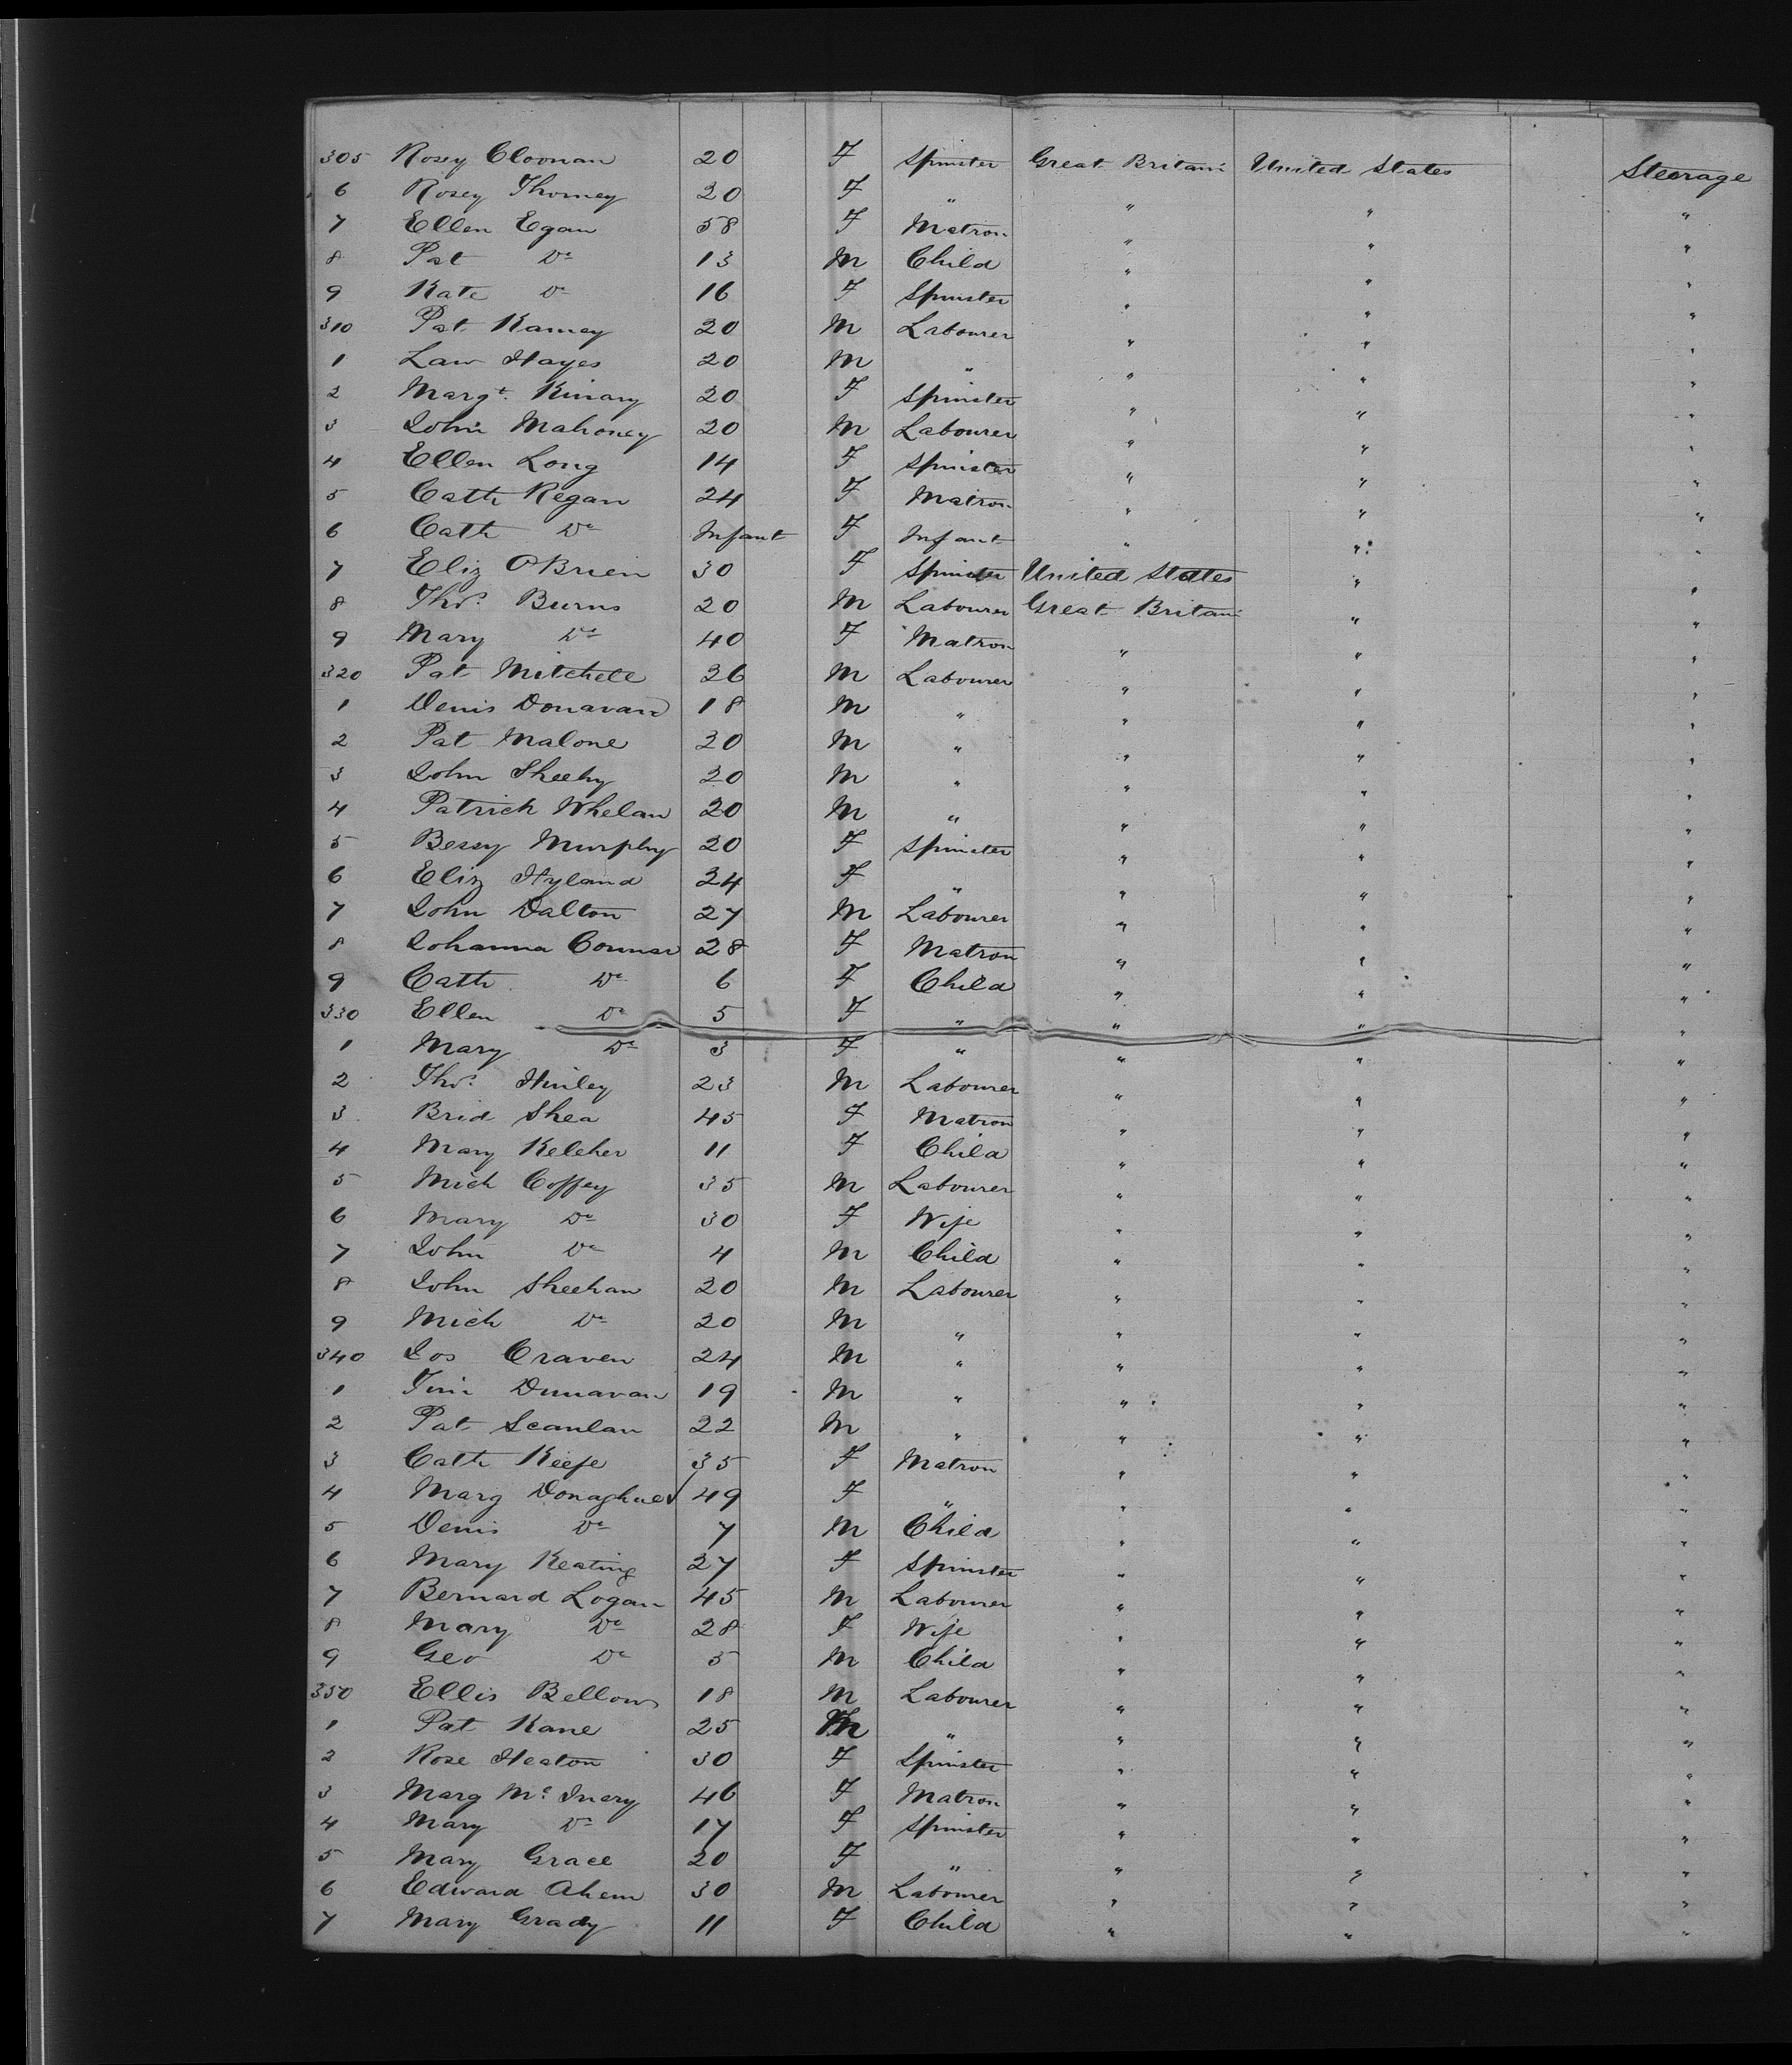 305 Rosey Cloonan 20 F Spinster Great Britain United States Steerage
6 Rosey Thomey 20 F " " " "
7 Ellen Egan 58 F Matron " " "
8 Pat Do 13 M Child " " "
9 Kate Do 16 F Spinster " " "
310 Pat Kamey 20 M Labourer " " "
1 Law Hayes 20 M " " " "
2 Margt. Kinary 20 F Spinster " " "
3 John Mahoney 20 M Labourer " " "
4 Ellen Long 14 F Spinster " " "
5 Cath Regan 24 F Matron " " "
6 Cath Do Infant F Infant " " "
7 Eliz O'Brien 30 F Spinster United States " "
8 Thos. Burns 20 M Labourer Great Britain " "
9 Mary Do 40 F Matron " " "
320 Pat Mitchell 26 M Labourer " " "
1 Denis Donavan 18 M " " " "
2 Pat Malone 20 M " " " "
3 John Sheehy 20 M " " " "
4 Patrick Whelan 20 M " " " "
5 Bessy Murphy 20 F Spinster " " "
6 Eliz Hyland 24 F " " " "
7 John Dalton 27 M Labourer " " "
8 Johanna Connar 28 F Matron " " "
9 Cath Do 6 F Child " " "
330 Ellen Do 5 F " " " "
1 Mary Do 3 F " " " "
2 Thos. Hinley 23 M Labourer " " "
3 Brid Shea 45 F Matron " " "
4 Mary Keleher 11 F Child " " "
5 Mich Coffey 35 M Labourer " " "
6 Mary Do 30 F Wife " " "
7 John Do 4 M Child " " "
8 John Sheehan 20 M Labourer " " "
9 Mich Do 20 M " " " "
340 Jos Craven 24 M " " " "
1 Tim Dunavan 19 M " " " "
2 Pat Scanlan 22 M " " " "
3 Cath Keefe 35 F Matron " " "
4 Marg Donaghue 49 F " " " "
5 Denis Do 7 M Child " " "
6 Mary Keating 27 F Spinster " " "
7 Bernard Logan 45 M Labourer " " "
8 Mary Do 28 F Wife " " "
9 Geo Do 5 M Child " " "
350 Ellis Bellows 18 M Labourer " " "
1 Pat Kane 25 M " " " "
2 Rose Heaton 30 F Spinster " " "
3 Marg Mc Inery 46 F Matron " " "
4 Mary Do 17 F Spinster " " "
5 Mary Grace 20 F " " " "
6 Edward Ahern 30 M Labourer " " "
7 Mary Grady 11 F Child " " "